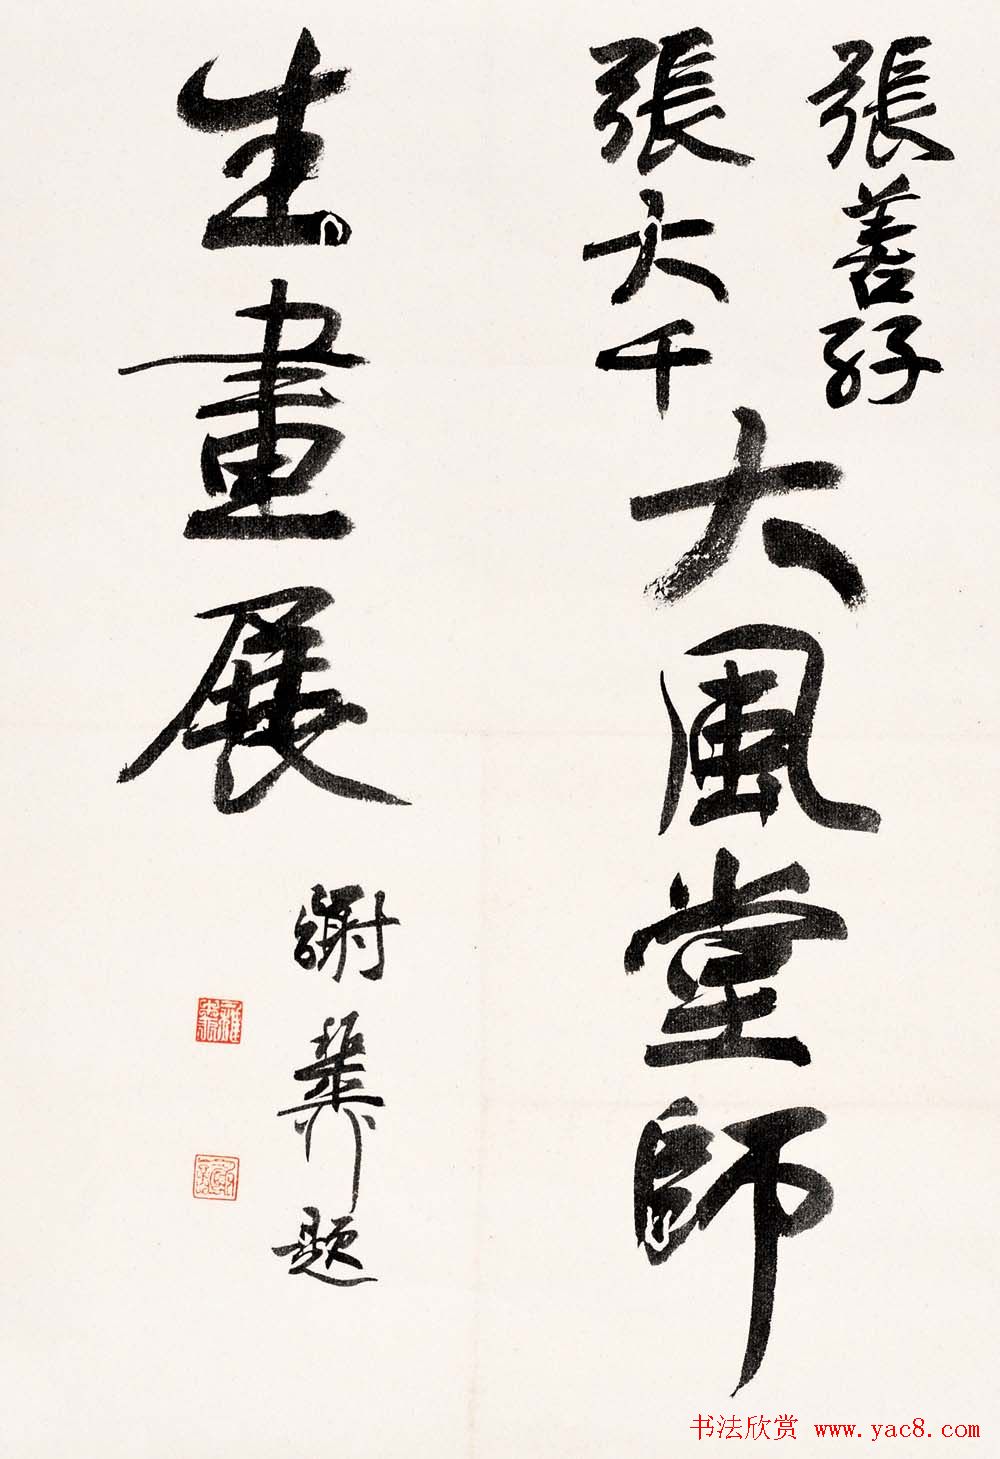 張善孖
張大千
大風堂師
生畫展
謝稚柳題
书法欣赏 www.yac8.com